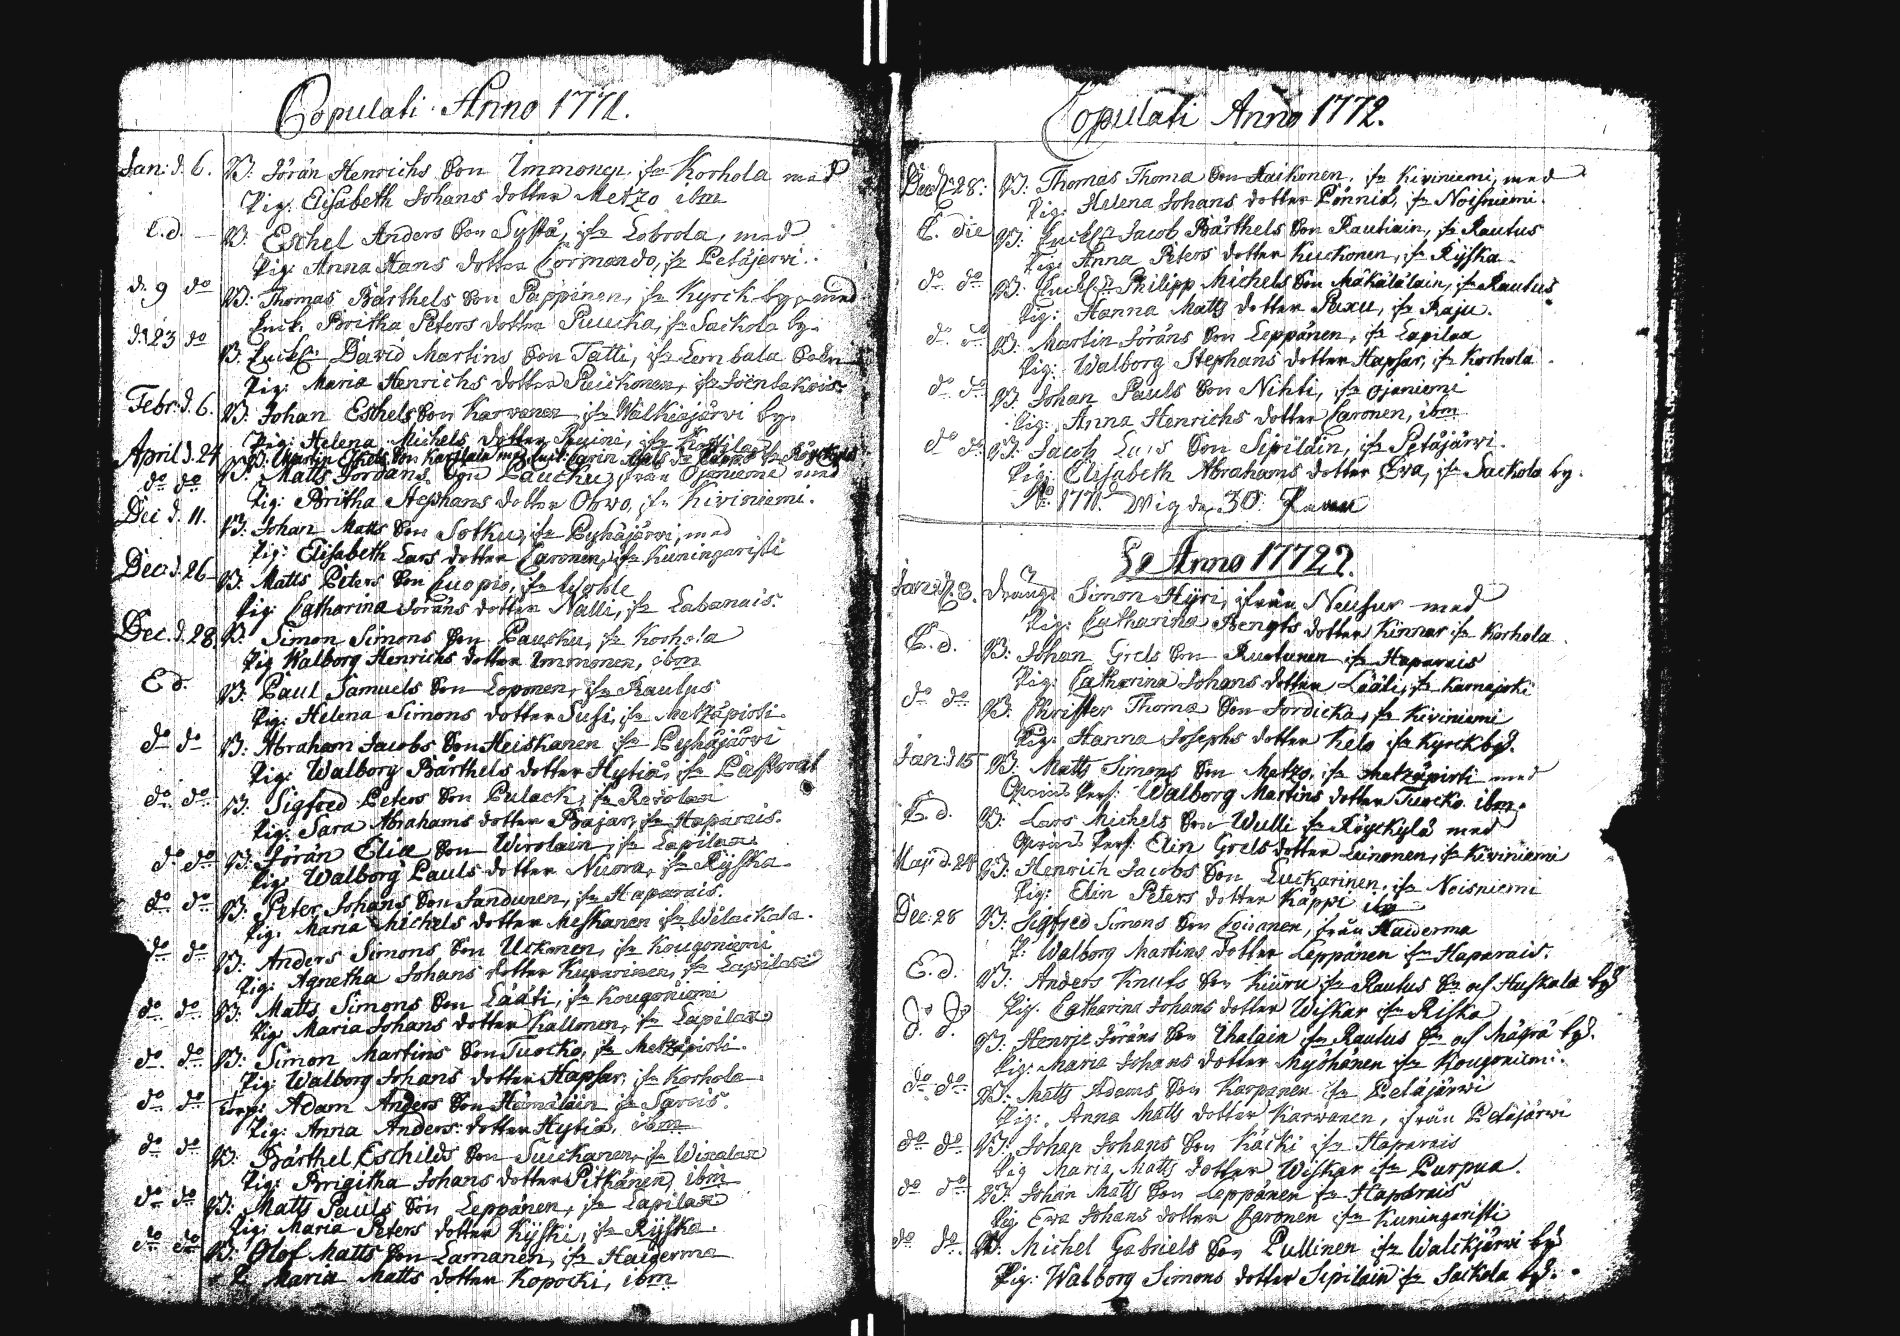 Copulati Anno 1771.
Jan: d. 6. B: Jörän Henrichs Son Immonen, ifr Korhola med
Pig: Elisabeth Johans dotter Metzo ibm
E. d. B: Eschel Anders Son Systä, ifr Lobrola, med
Pig: Anna Hans dotter Cormando, ifr Petäjervi.
d. 9 do B: Thomas Bärthels Son Pappinen, ifr Kyrck by, med
Enck. Britha Peters dotter Puucka, ifr Sackola by.
d: 23 do B: Enckl: David Martins Son Tatti, ifr Lembala
Pig: Maria Henrichs dotter Puickonen, ifr
Febr: d. 6. B: Johan Eschels Son Karwanen ifr Walkiajärvi by.
Pig: Helena Michels dotter
April d. 24 B: Martin Eskels Son
do do B: Matts Jördans Son Pauchu, från Ojaniemi med
Pig: Britha Stephans dotter Orwo, ifr Kiviniemi.
Dec d. 11. B: Johan Matts Son Sotku, ifr Pyhäjärvi, med
Pig: Elisabeth Lars dotter Caronen, ifr Kuningaristi
Dec: d. 26 B: Matts Peters Son Cuopio, ifr
Pig: Catharina Jöräns dotter Nalli, ifr Labanais.
Dec. d. 28. B: Simon Simons Son Pauchu, ifr Korhola
Pig Walborg Henrichs dotter Immonen, ibm
E d. B: Paul Samuels Son Loponen, ifr Rautus
Pig: Helena Simons dotter Susi, ifr Metzäpirti.
do do B: Abraham Jacobs Son Heiskanen ifr Pyhäjärvi
Pig: Walborg Bärthels dotter Hytiä, ifr
do do B: Sigfred Peters Son Pulack, ifr
Pig: Sara Abrahams dotter Bajar, ifr Haparais.
do do B: Jörän Eliæ Son Wirolain, ifr Lapilax
Pig: Walborg Pauls dotter Nuora, ifr Ryska.
do do B: Peter Johans Son Jandunen, ifr Haparais.
Pig: Maria Michels dotter Meskanen ifr Wilackala.
do do B: Anders Simons Son Uckonen, ifr Kougoniemi
Pig: Agnetha Johans dotter Kuparinen, ifr Lapilax
do do B: Matts Simons Son Lääti, ifr Kougoniemi
Pig Maria Johans dotter Kallonen, ifr Lapilax
do do B: Simon Martins Son Tuocko, ifr Metzäpirti.
Pig Walborg Johans dotter Hapsar, ifr Korhola
do do Torp: Adam Anders Son Hämäläin ifr Sareis.
Pig: Anna Anders dotter Hytiä, ibm
do do B: Bärthel Eschilds Son Suickanen, ifr
Pig: Brigitha Johans dotter Pitkänen, ibm
do do B: Matts Pauls Son Leppänen, ifr Lapilax
Pig: Maria Peters dotter Kyski, ifr Ryska.
do do B: Olof Matts Son Lamanen, ifr Haigerma
P: Maria Matts dotter Kopocki, ibm
Copulati Anno 1772.
Dec: d. 28: B: Thomas Thomæ Son Haikonen. ifr Kiviniemi, med
Pig: Helena Johans dotter Pönnid, ifr Noisniemi.
E. die B: Enckl: Jacob Bärthels Son Rautiain, ifr Rautus
Pig: Anna Peters dotter Kuckonen, ifr Ryska.
do do B: Enckl: Philipp Michels Son Mäkäläläin, ifr Rautus
Pig: Hanna Matts dotter Puxu, ifr Raju.
do do B: Martin Jöräns Son Leppänen, ifr Lapilax
Pig: Walborg Stephans dotter Hapsar, ifr Korhola
do do B: Johan Pauls Son Nihti, ifr Ojaniemi
Pig: Anna Henrichs dotter Caronen, ibm
do do B: Jacob Lars Son Sipiläin, ifr Petäjärvi.
Pig: Elisabeth Abrahams dotter Eva, ifr Sackola by.
Ao 1771. Wigde 30. Paar
Anno 1772
Jan: d. 3. Dräng: Simon Hyri, ifrån Neusur med
Pig: Catharina Bengts dotter Kinnar ifr Korhola.
E. d. B: Johan Grels Son Ruotunen ifr Haparais
Pig: Catharina Johans dotter Lääli, ifr
do do B: Christer Thomæ Son Jordicka, ifr Kiviniemi
Pig: Hanna Josephs dotter Kelo ifr Kyrckbyd.
Jan: d 15 B: Matts Simons Son Metzo, ifr Metzäpirti med
Pers: Walborg Martins dotter Tuocko ibm.
E. d. B: Lars Michels Son Wulli ifr Röyckylä med
Pers: Elin Grels dotter Leinonen, ifr Kiviniemi
Maji d. 24 B: Henrich Jacobs Son Luckarinen, ifr Noisniemi
Pig: Elin Peters dotter Käppi ibm
Dec: 28 B: Sigfred Simons Son Loivanen, från Haiderma
P: Walborg Martins dotter Leppänen ifr Haparais.
E. d. B: Anders Knuts Son Kiuru ifr Rautus Sn och Huskala byd
Pig. Catharina Johans dotter Wiskar ifr Riska
do do B: Henric Jöräns Son Ihalain ifr Rautus Sn och Mägrä byd.
Pig: Maria Johans dotter Myöhänen ifr Kougoniemi.
do do B: Matts Adams Son Karpanen ifr Petäjärwi
Pig: Anna Matts dotter Karwanen, ifrån Petäjärwi
do do B: Johan Johans Son Käcki ifr Haparais
Pig Maria Matts dotter Wiskar ifr Purpua.
do do B: Johan Matts Son Leppänen ifr Haparais
Pig Eva Johans dotter Caronen ifr Kuningaristi
do do B: Michel Gabriels Son Pullinen ifr Walckjärwi byd
Pig: Walborg Simons dotter Sipiläin ifr Sackola byd.